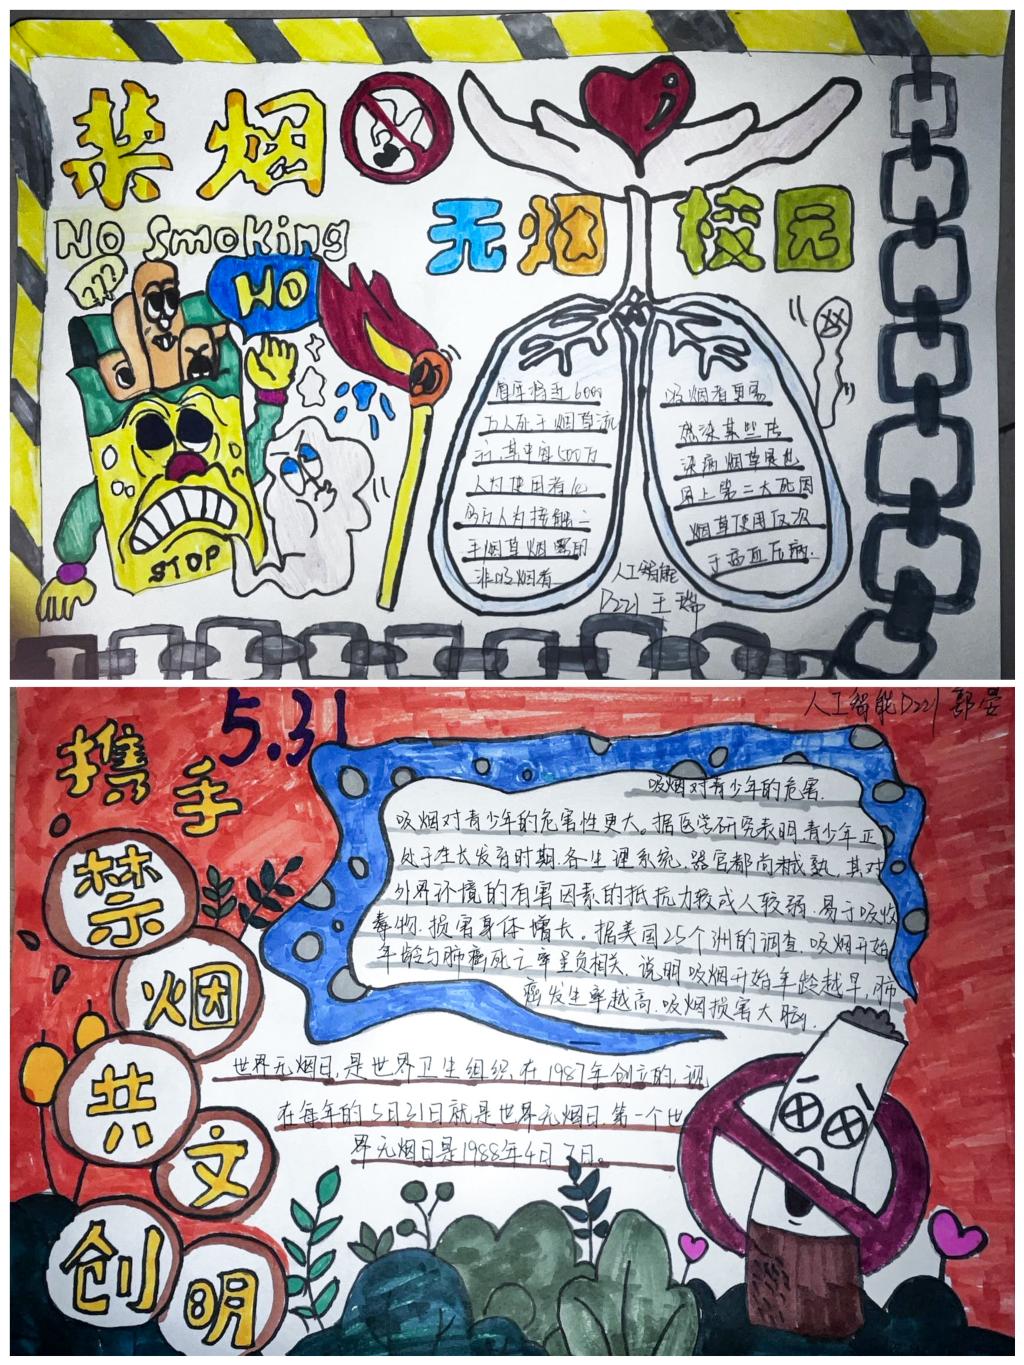 禁烟
NO Smoking
???
NO
STOP
无烟校园
每年将近600
万人死于烟草流
行,其中有500万
人为使用者
60万人为接触二
手烟草烟雾的
非吸烟者
吸烟者更易
感染某些传
染病 烟草是世
界上第二大死因
烟草使用仅次
于高血压病.
人工智能
D221 王瑞
5.31
人工智能D221 郭晏
携手
禁烟
共文
创明
吸烟对青少年的危害.
吸烟对青少年的危害性更大。据医学研究表明青少年正
处于生长发育时期.各生理系统.器官都尚未成熟.其对
外界环境的有害因素的抵抗力较成人较弱.易于吸收
毒物.损害身体增长。据美国25个洲的调查.吸烟开始
年龄与肺癌死亡率呈负相关.说明吸烟开始年龄越早,肺
癌发生率越高.吸烟损害大脑.
世界无烟日,是世界卫生组织在1987年创立的,现
在每年的5月31日就是世界无烟日.第一个世
界无烟日是1988年4月7日。